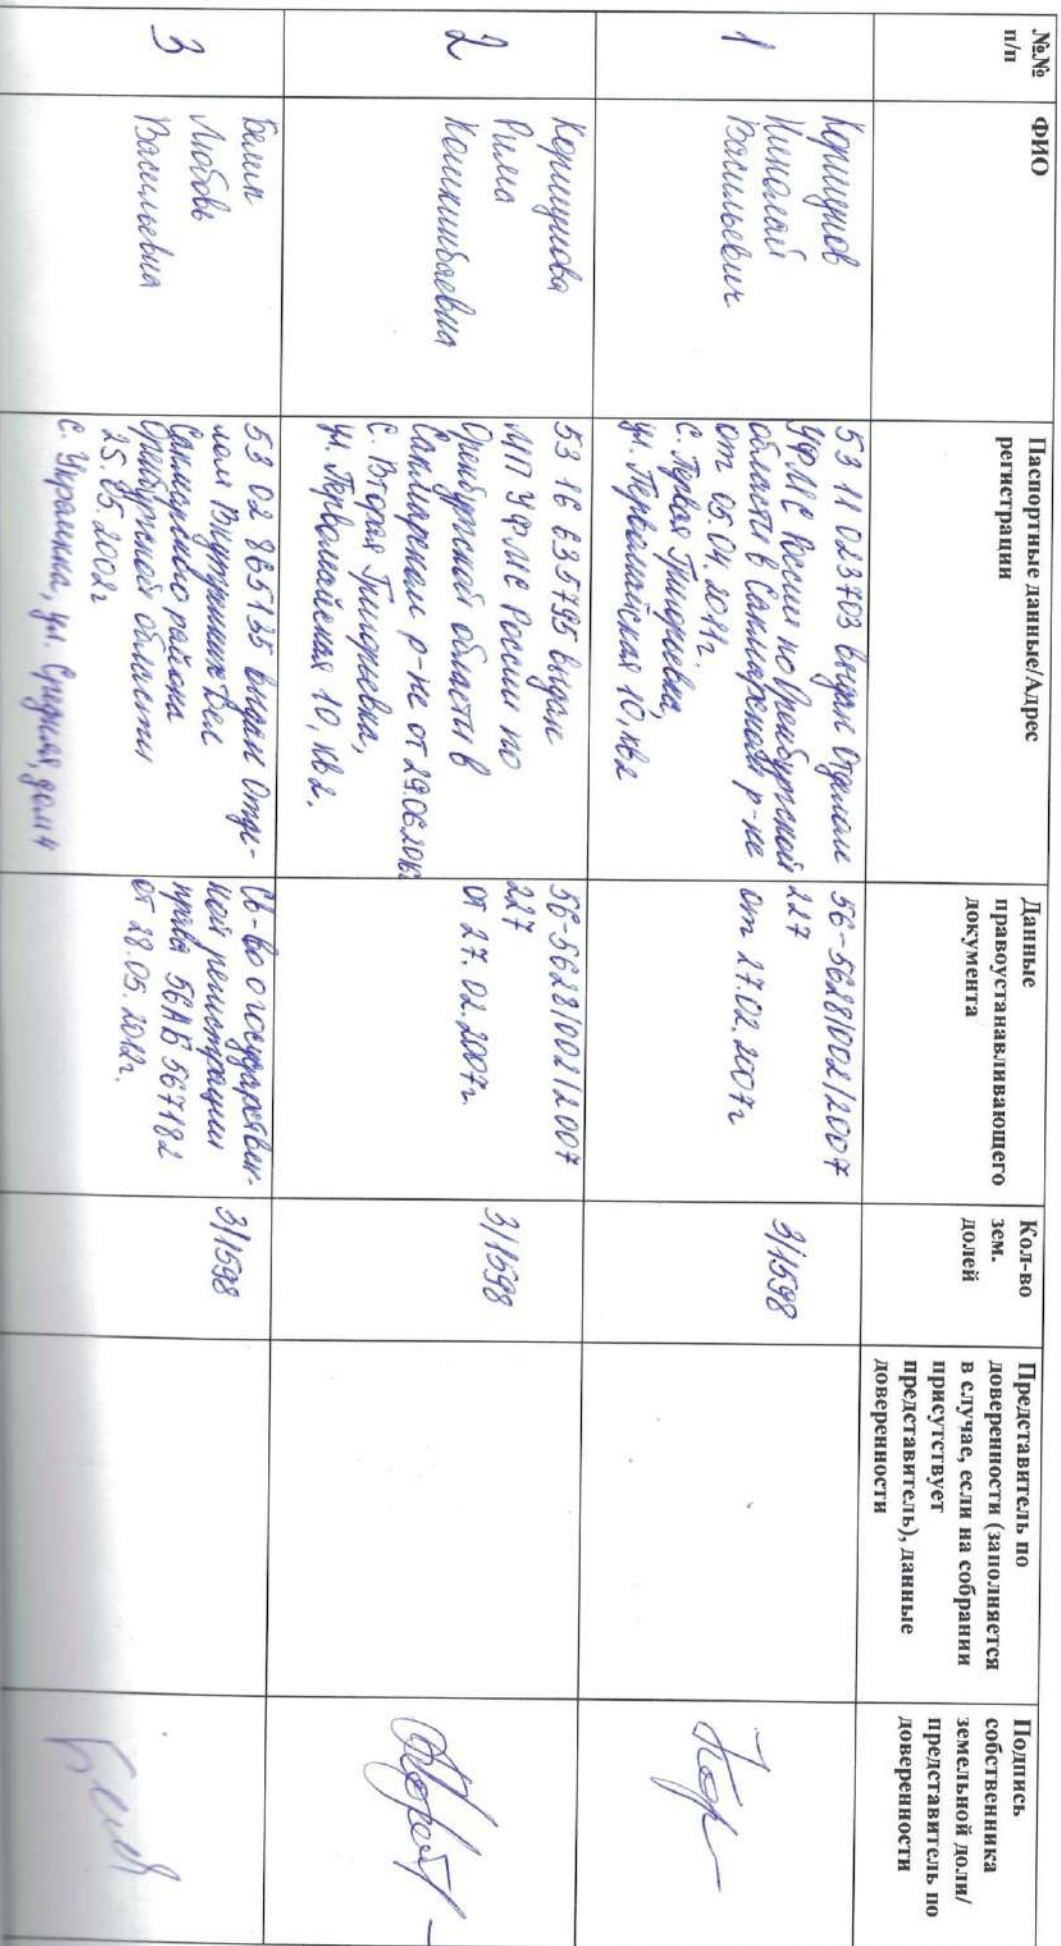 №№
п/п
ФИО
Паспортные данные/Адрес
регистрации
Данные
правоустанавливающего
документа
Кол-во
зем.
долей
Представитель по
доверенности (заполняется
в случае, если на собрании
присутствует
представитель), данные
доверенности
Подпись
собственника
земельной доли/
представитель по
доверенности
1
Коршунов
Николай
Васильевич
53 11 023703 выдан Отделом
УФМС России по Оренбургской
области в Сакмарском р-не
от 05.04.2011г.
с. Первая Григорьевка,
ул. Первомайская 10, кв2
56-5628/002/2007
227
от 27.02.2007г
3/1598
Кор
2
Коршунова
Рима
53 16 635795 выдан
МП УФМС России по
Оренбургской области в
Сакмарском р-не от 29.06.2016г
с. Вторая Григорьевка,
ул. Первомайская 10, кв 2.
56-5628/002/2007
227
от 27.02.2007г.
3/1598
3
Белик
Любовь
Васильевна
53 02 865135 выдан Отде-
лом Внутренних Дел
Сакмарского района
Оренбургской области
25.05.2002г
с. Украинка, ул. Средняя, дом 4
Св-во о государствен-
ной регистрации
права 56АБ 567182
от 28.05.2012г.
3/1598